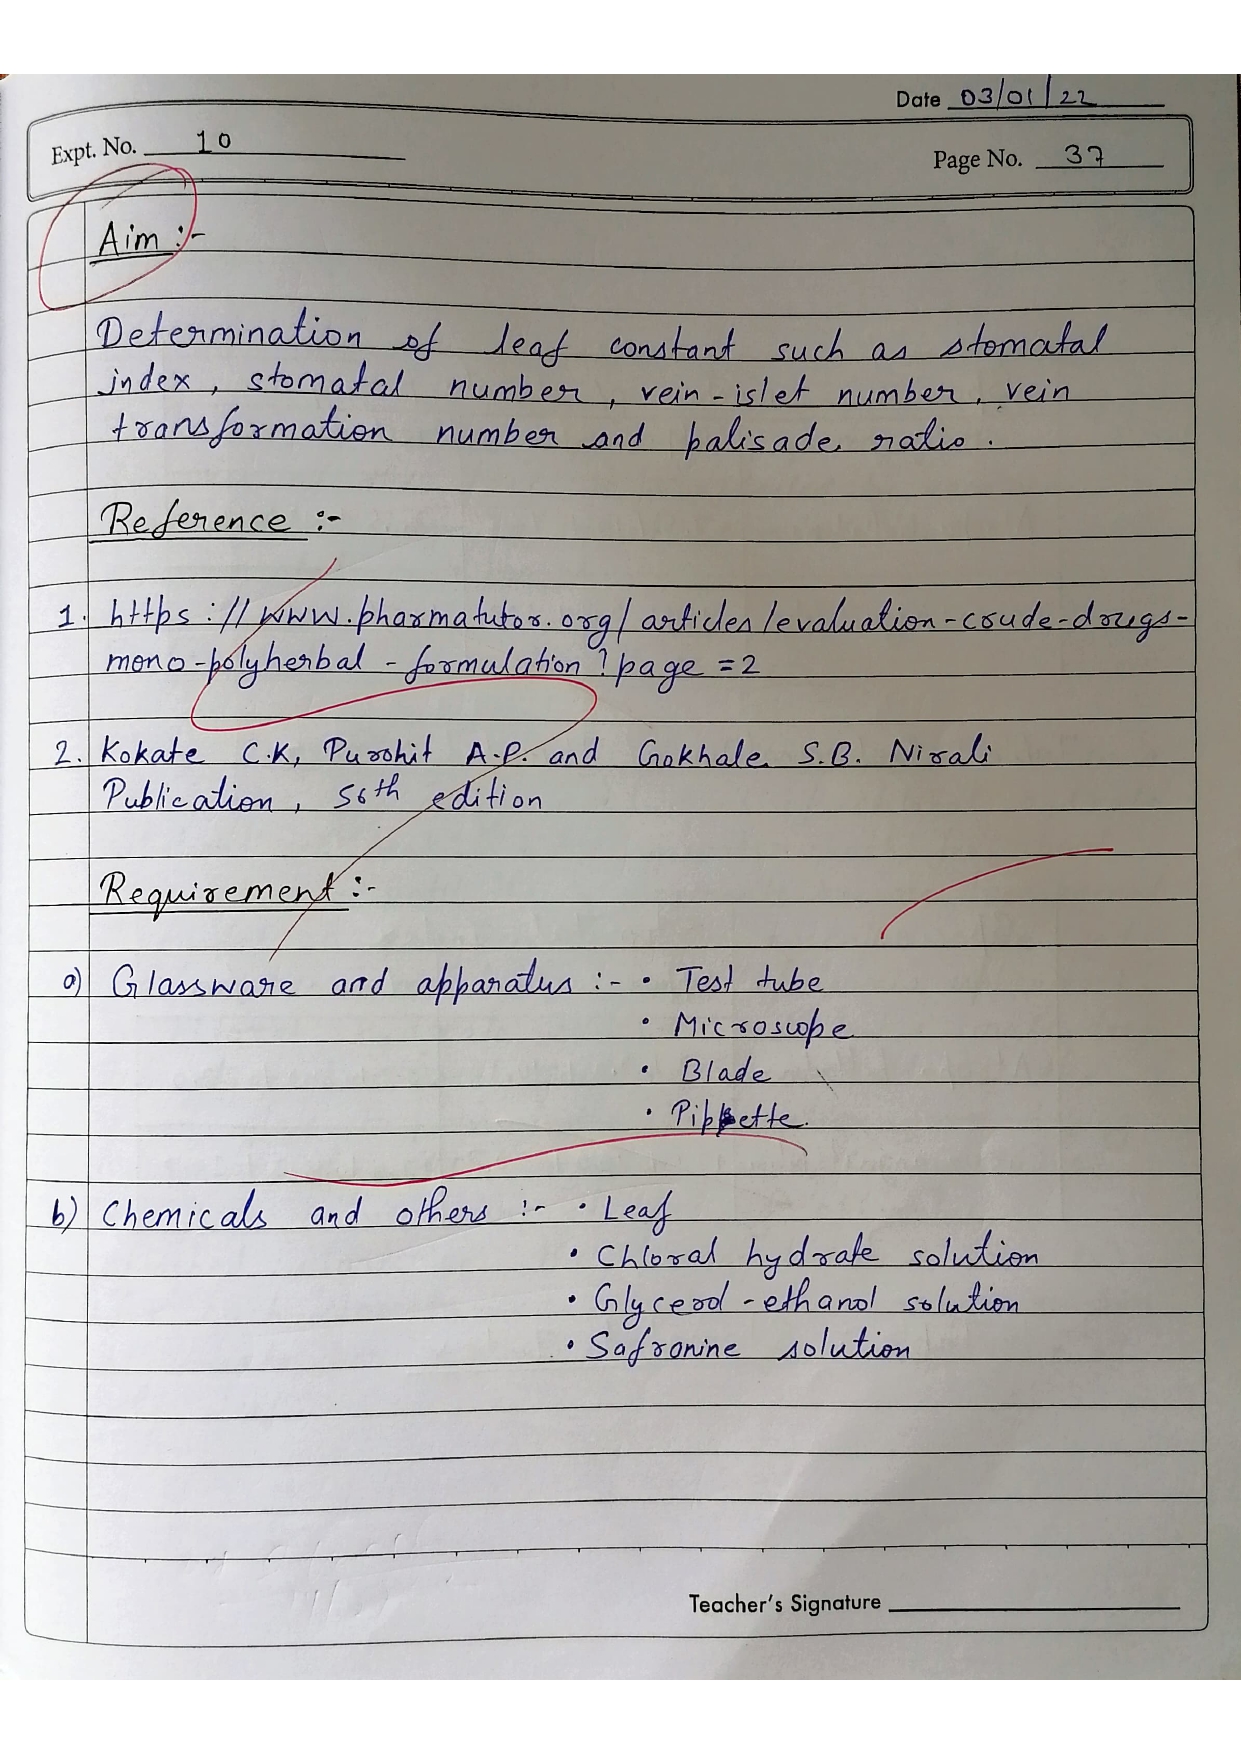 Date 03/01/22
Expt. No. 10
Page No. 37
Aim :-
Determination of leaf constant such as stomatal
index, stomatal number, vein-islet number, vein
transformation number and palisade ratio.
Reference :-
1. https://www.pharmatutor.org/articles/evaluation-crude-drugs-
mono-polyherbal-formulation?page=2
2. Kokate C.K, Purohit A.P. and Gokhale S.B. Nirali
Publication, 56th edition
Requirement :-
a) Glassware and apparatus :- • Test tube
• Microscope
• Blade
• Pippette.
b) Chemicals and others :- • Leaf
• Chloral hydrate solution
• Glycerol-ethanol solution
• Safronine solution
Teacher's Signature